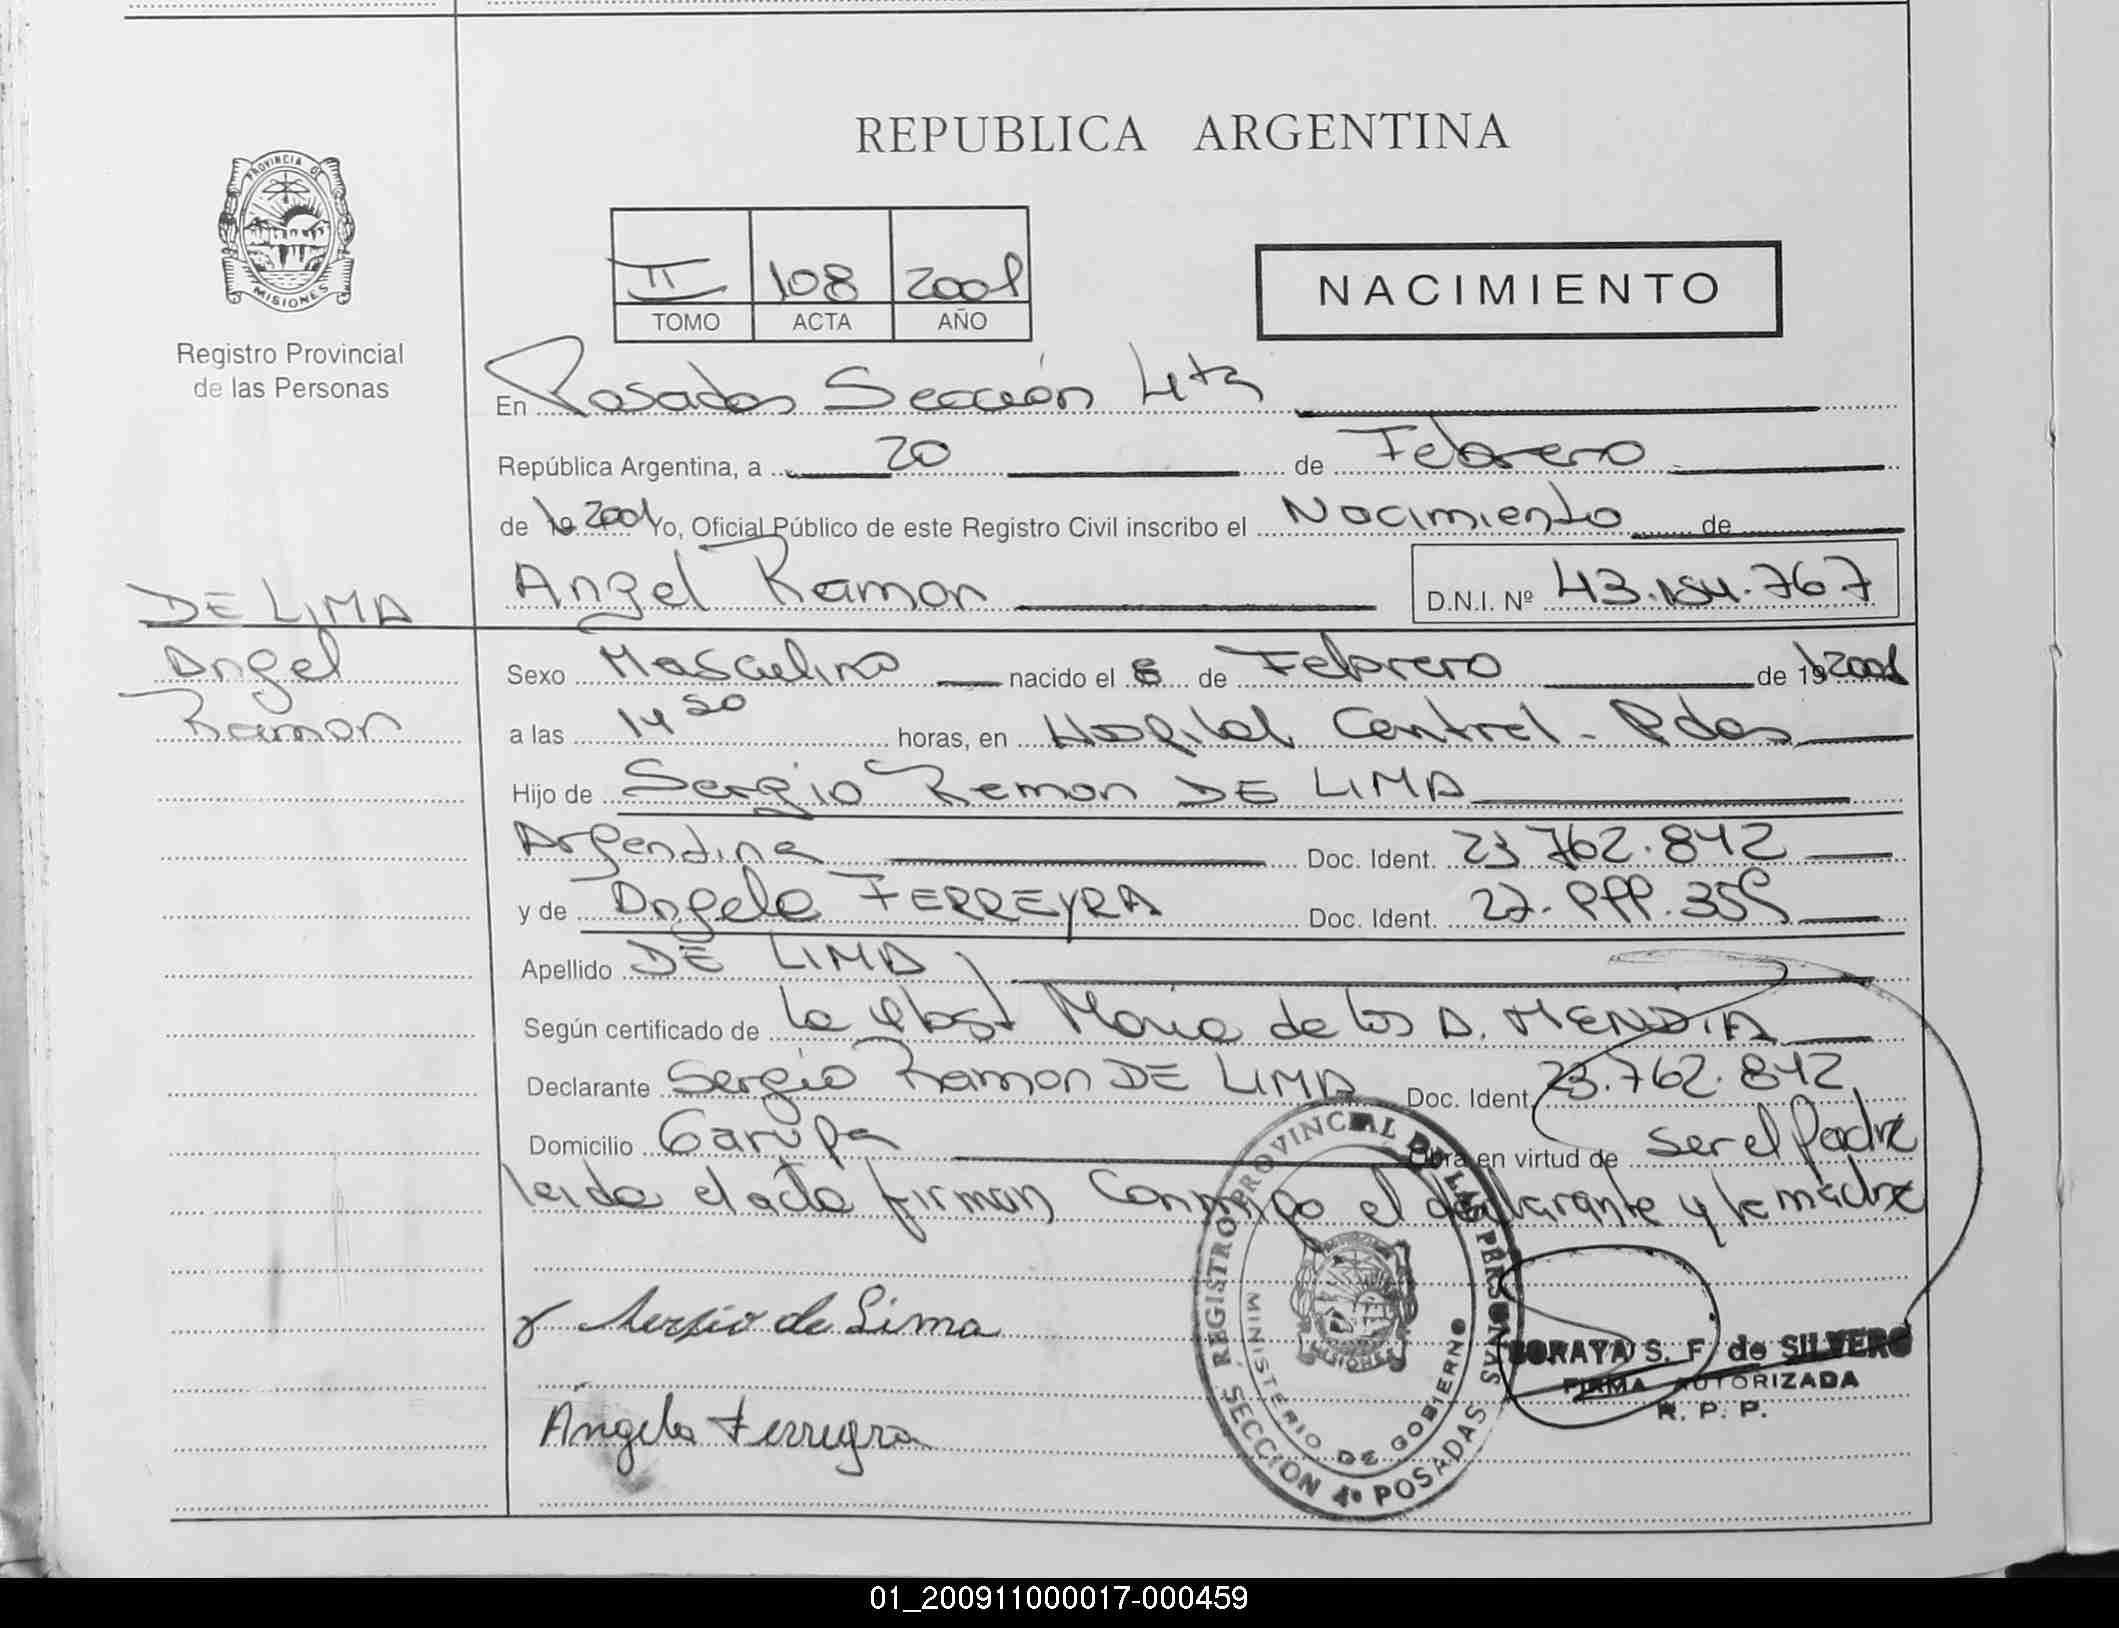 REPUBLICA ARGENTINA
PROVINCIA DE
MISIONES
Registro Provincial
de las Personas
II 108 2001
TOMO ACTA AÑO
NACIMIENTO
En Posadas Sección 4ta
República Argentina, a 20 de Febrero
de 2001 Yo, Oficial Público de este Registro Civil inscribo el Nacimiento de
Angel Ramon D.N.I. Nº 43.154.767
DE LIMA
Angel
Ramon
Sexo Masculino nacido el 6 de Febrero de 19 2001
a las 14 50 horas, en Hospital Central - Pdas
Hijo de Sergio Ramon DE LIMA
Argentina Doc. Ident. 23.762.842
y de Angela FERREYRA Doc. Ident.
Apellido DE LIMA
Según certificado de la Obst Maria de los A. MENDIA
Declarante Sergio Ramon DE LIMA Doc. Ident. 23.762.842
Domicilio Garupa Obra en virtud de ser el Padre
leida el acta firman conmigo el declarante y la madre
Sergio de Lima
Angela Ferreyra
REGISTRO PROVINCIAL DE LAS PERSONAS
SECCION 4º POSADAS
MINISTERIO DE GOBIERNO
MISIONES
SORAYA S. F. de SILVERO
FIRMA AUTORIZADA
R. P. P.
01_200911000017-000459